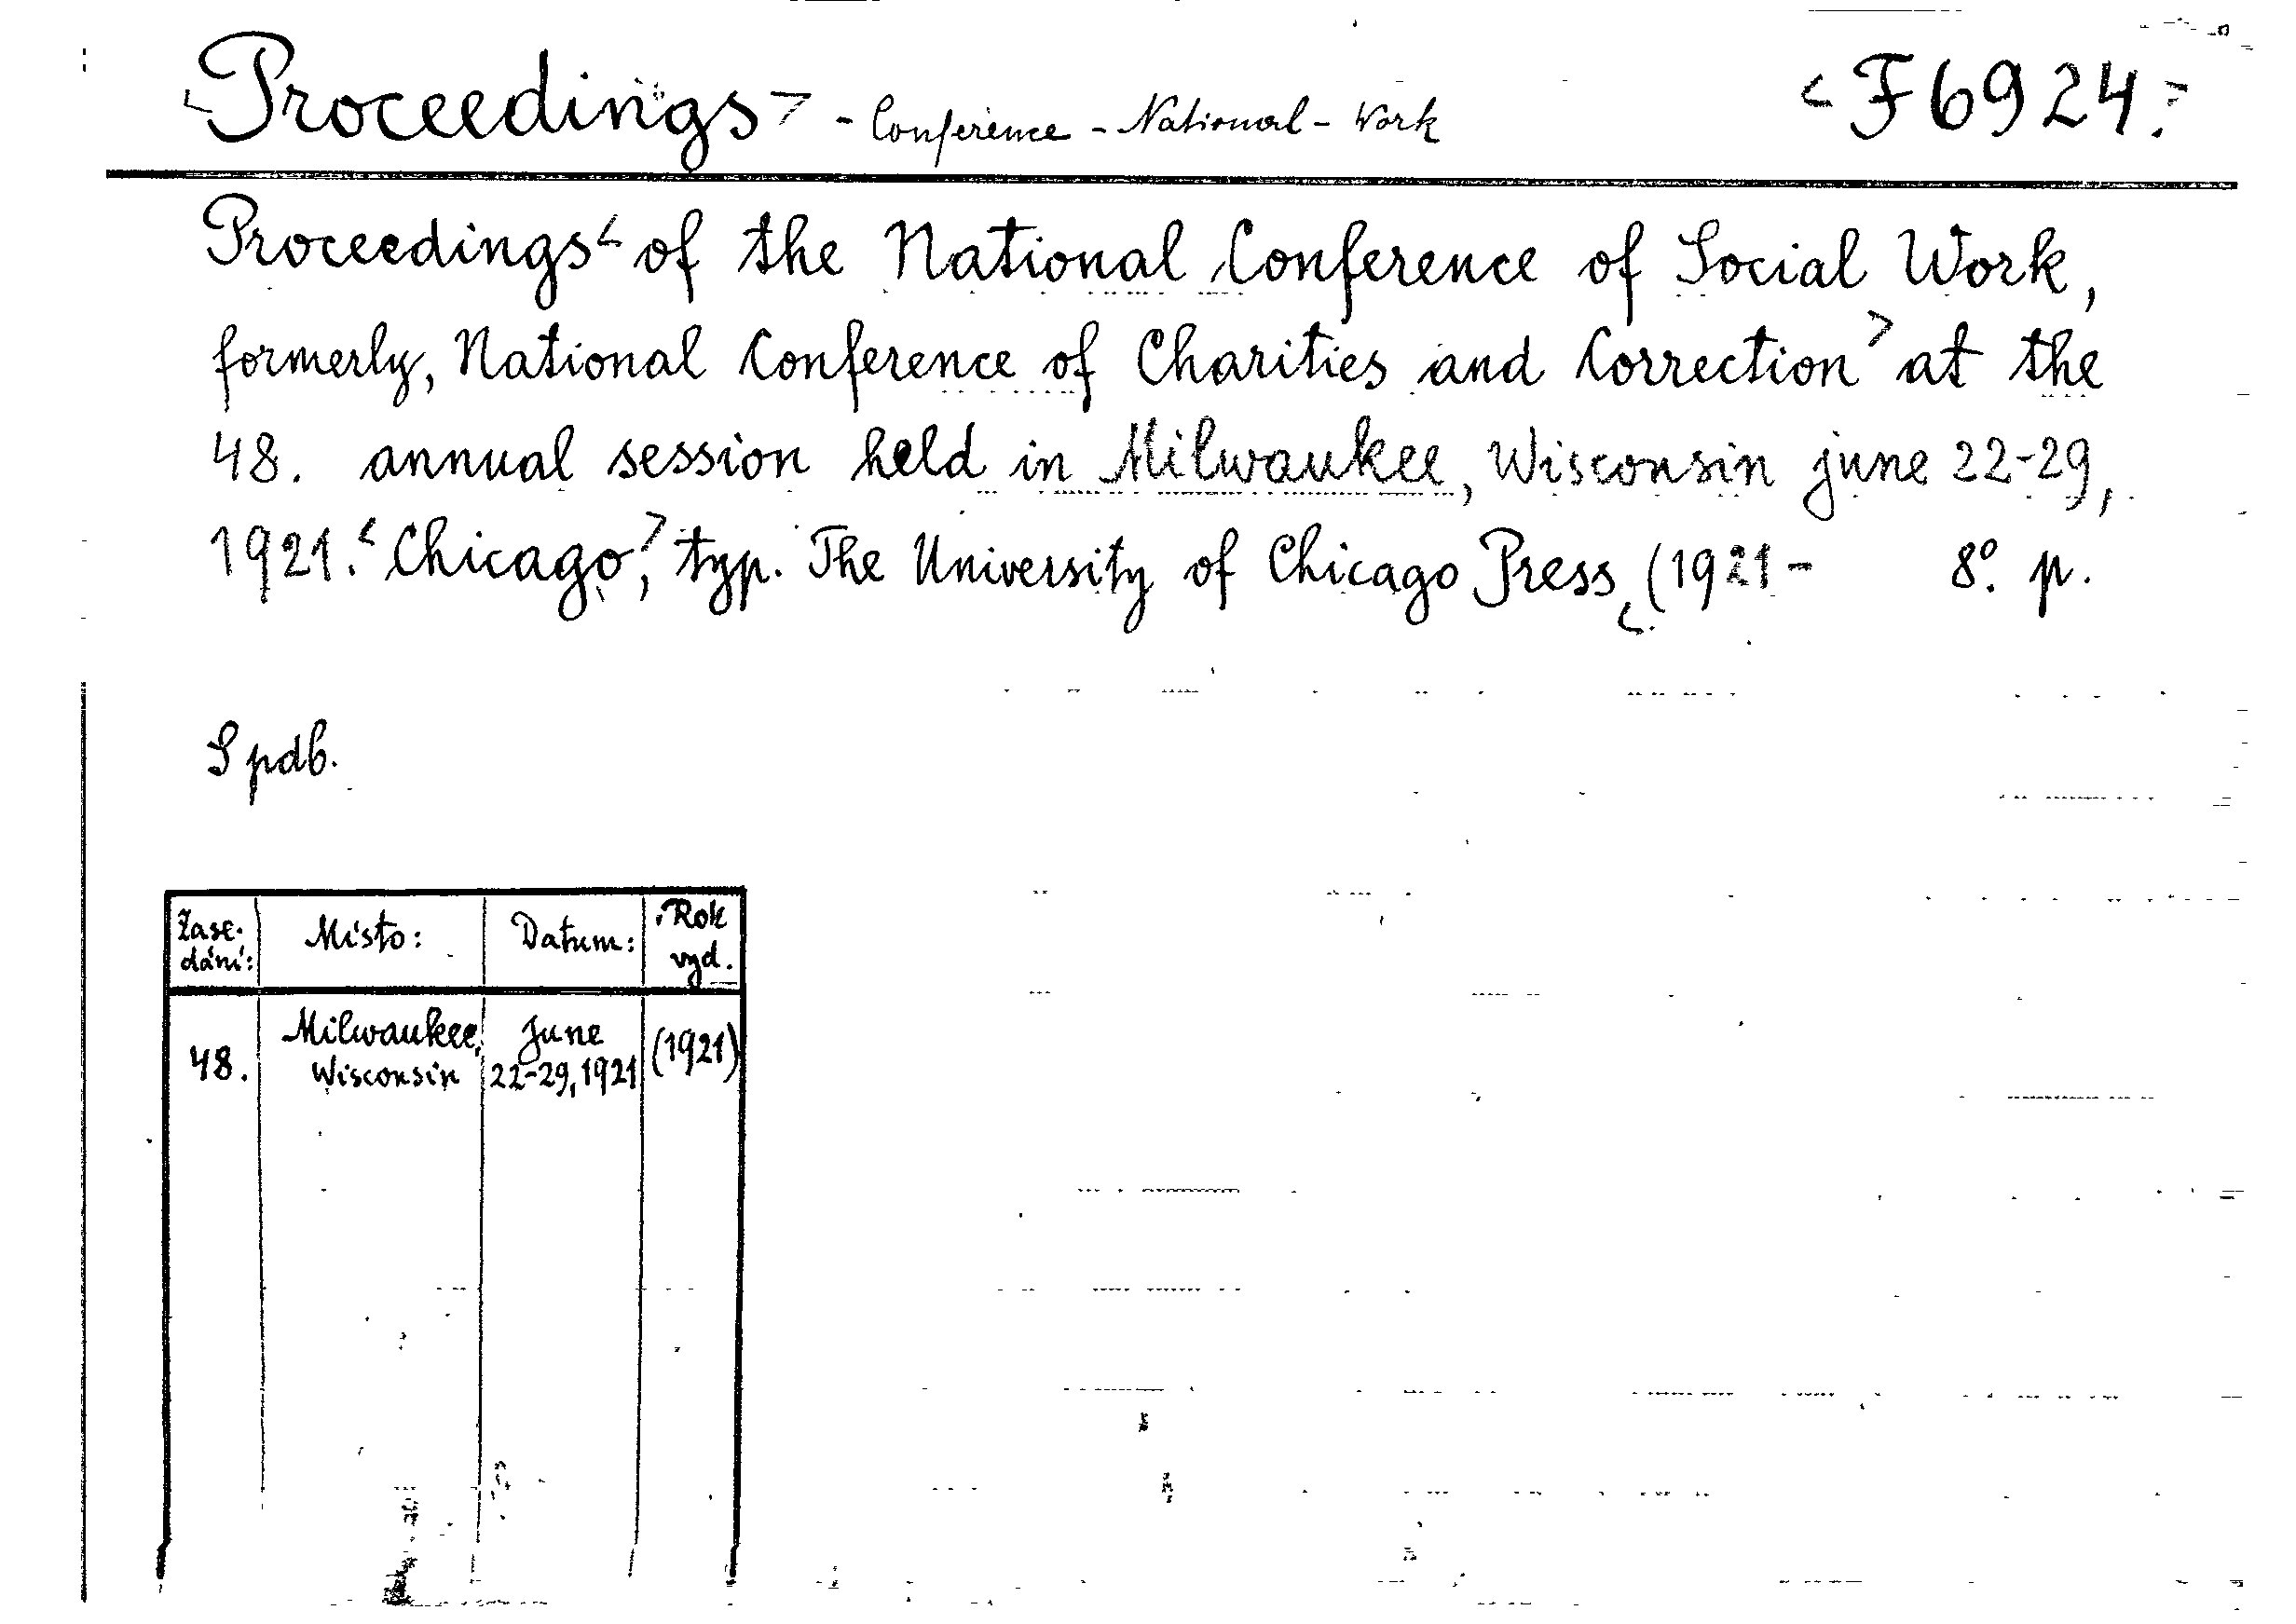 <Proceedings> - Conference - National - Work <F 6924.>
Proceedings < of the National Conference of Social Work,
formerly, National Conference of Charities and Correction > at the
48. annual session held in Milwaukee, Wisconsin june 22-29,
1921. <Chicago,> typ. The University of Chicago Press, (1921- 8°. p.
S pdb.
Zase- Místo: Datum: Rok
dání: vyd.
48. Milwaukee, June (1921)
Wisconsin 22-29, 1921